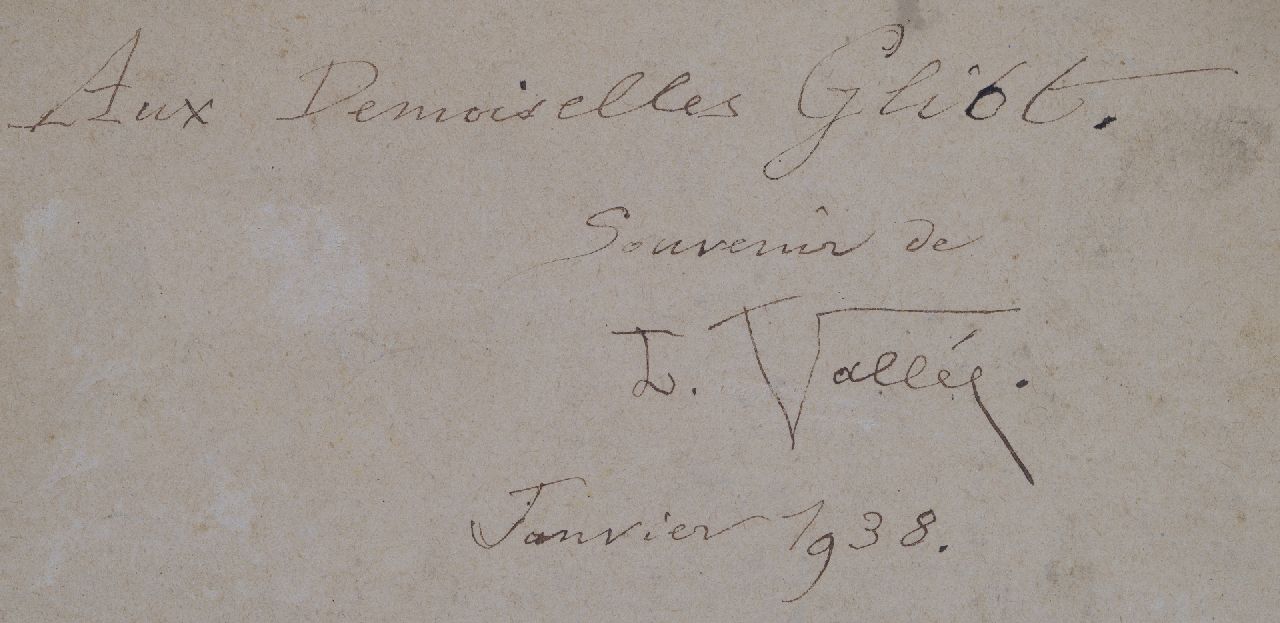 Aux Demoiselles Gliot.
Souvenir de
L. Vallée.
Janvier 1938.